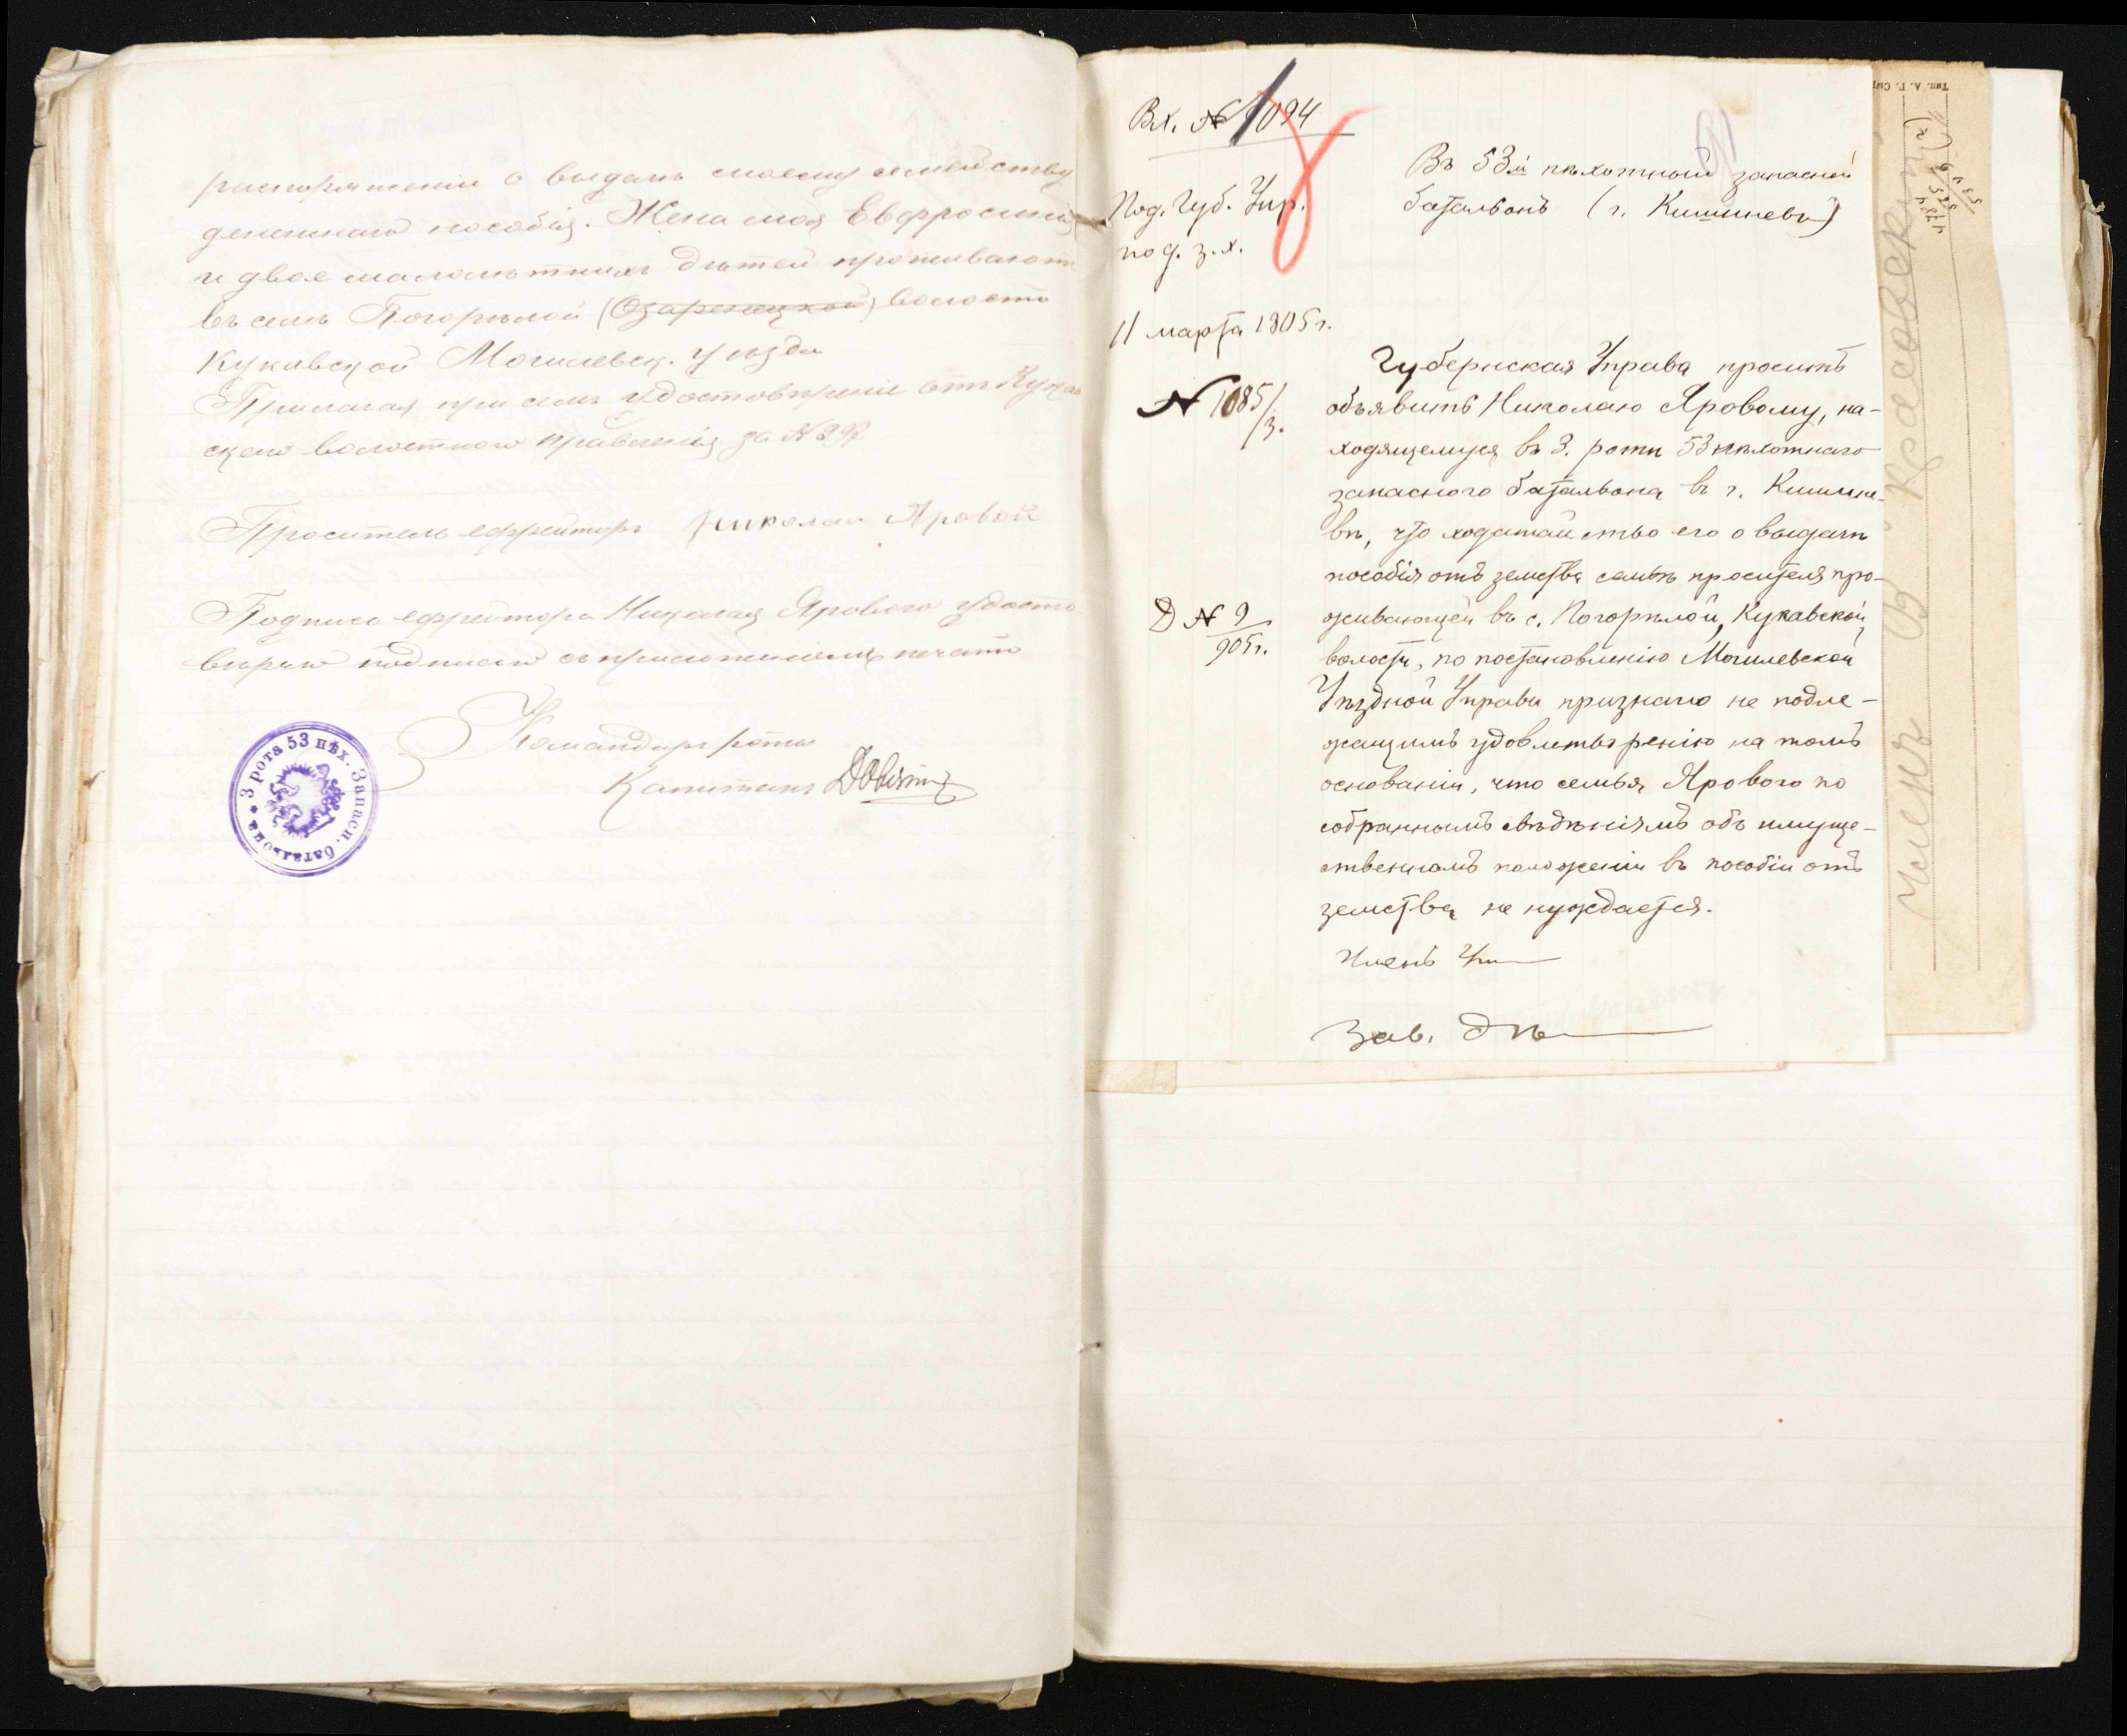 распоряженіи о выдачѣ моему семейству
денежнаго пособія. Жена моя Евфросинія
и двое малолѣтнихъ дѣтей проживаютъ
въ селѣ Погорѣлой (Озаренецкой) волости
Кукавской Могилевск. уѣзда
Прилагая при семъ удостовѣреніе отъ Кукав
скаго волостного правленія за №
Проситель ефрейторъ Николай Яровой
Подпись ефрейтора Николая Ярового удосто
вѣряю подписью съ приложеніемъ печати
Командиръ роты
Капитанъ
3 рота 53 пѣх. Запасн. баталіона *
Вх. № 1094
Под. Губ. Упр.
по д. з. х.
11 марта 1905 г.
№ 1085/3.
Д № 9
905 г.
91
Въ 53й пѣхотный запасной
батальонъ (г. Кишиневъ)
Губернская Управа проситъ
объявить Николаю Яровому, на-
ходящемуся въ 3. роты 53 пѣхотнаго
запасного баталъона въ г. Кишине-
вѣ, что ходатайство его о выдачѣ
пособія отъ земства семьѣ просителя про-
живающей въ с. Погорѣлой, Кукавской
волости, по постановленію Могилевской
Уѣздной Управы признано не подле-
жащимъ удовлетворенію на томъ
основаніи, что семья Ярового по
собраннымъ свѣдѣніямъ объ имуще-
ственномъ положеніи въ пособіи отъ
земства не нуждается.
Членъ Уп
Зав. дѣ
Тип. А. Г. Сыр
Членъ В Красовскій